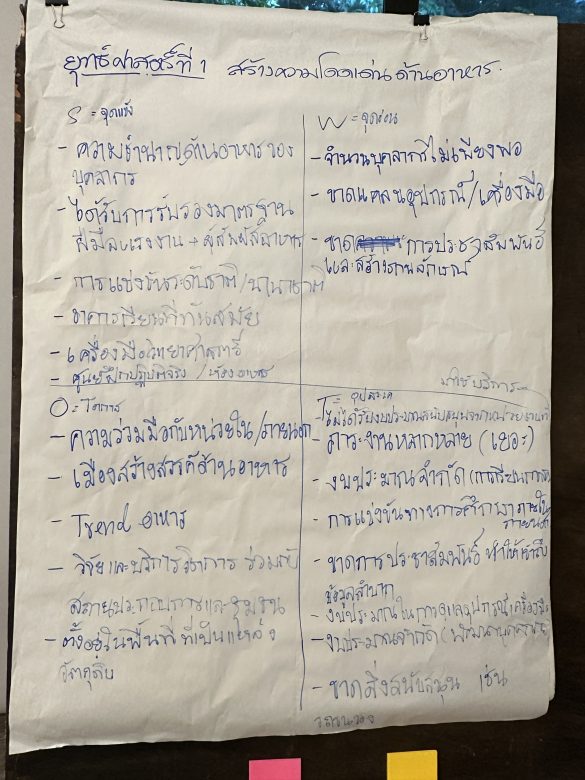 ยุทธ์ศาสตร์ที่ 1 สร้างความโดดเด่นด้านอาหาร.
S = จุดแข็ง
- ความชำนาญด้านอาหารของ
บุคลากร
- ได้รับการรับรองมาตรฐาน
ฝีมือแรงงาน → ผู้สัมผัสอาหาร
- การแข่งขันระดับชาติ/นานาชาติ
- อาคารเรียนที่ทันสมัย
- เครื่องมือวิทยาศาสตร์
- ศูนย์ฝึกปฏิบัติจริง / ห้องอาหาร
W = จุดอ่อน
- จำนวนบุคลากรไม่เพียงพอ
- ขาดแคลนอุปกรณ์/เครื่องมือ
- ขาด การประชาสัมพันธ์
และสร้างภาพลักษณ์
O = โอกาส
- ความร่วมมือกับหน่วยใน/ภายนอก
- เมืองสร้างสรรค์ด้านอาหาร
- Trend อาหาร
- วิจัยและบริการวิชาการ ร่วมกับ
สถานประกอบการและชุมชน
- ตั้งอยู่ในพื้นที่ที่เป็นแหล่ง
วัตถุดิบ
T = อุปสรรค
- ไม่ได้รับงบประมาณสนับสนุนจาก
- ภาระงานหลากหลาย (เยอะ)
- งบประมาณจำกัด (การเรียนการสอน
- การแข่งขันทางการศึกษา ภายใน
ภายนอก
- ขาดการประชาสัมพันธ์ ทำให้เข้าถึง
ข้อมูลลำบาก
- งบประมาณในการดูแลอุปกรณ์เครื่องมือ
- งบประมาณจำกัด (พัฒนาบุคลากร)
- ขาดสิ่งสนับสนุน เช่น